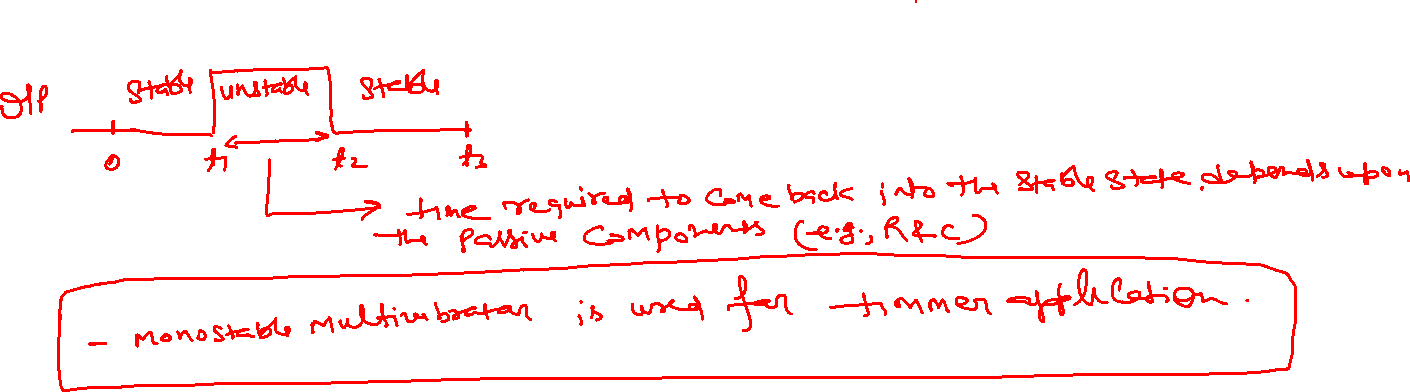 O/P stable unstable stable
0 t1 t2 t3
time required to come back into the stable state depends upon
the passive components (e.g., R & C)
- Monostable Multivibrator is used for timmer application.